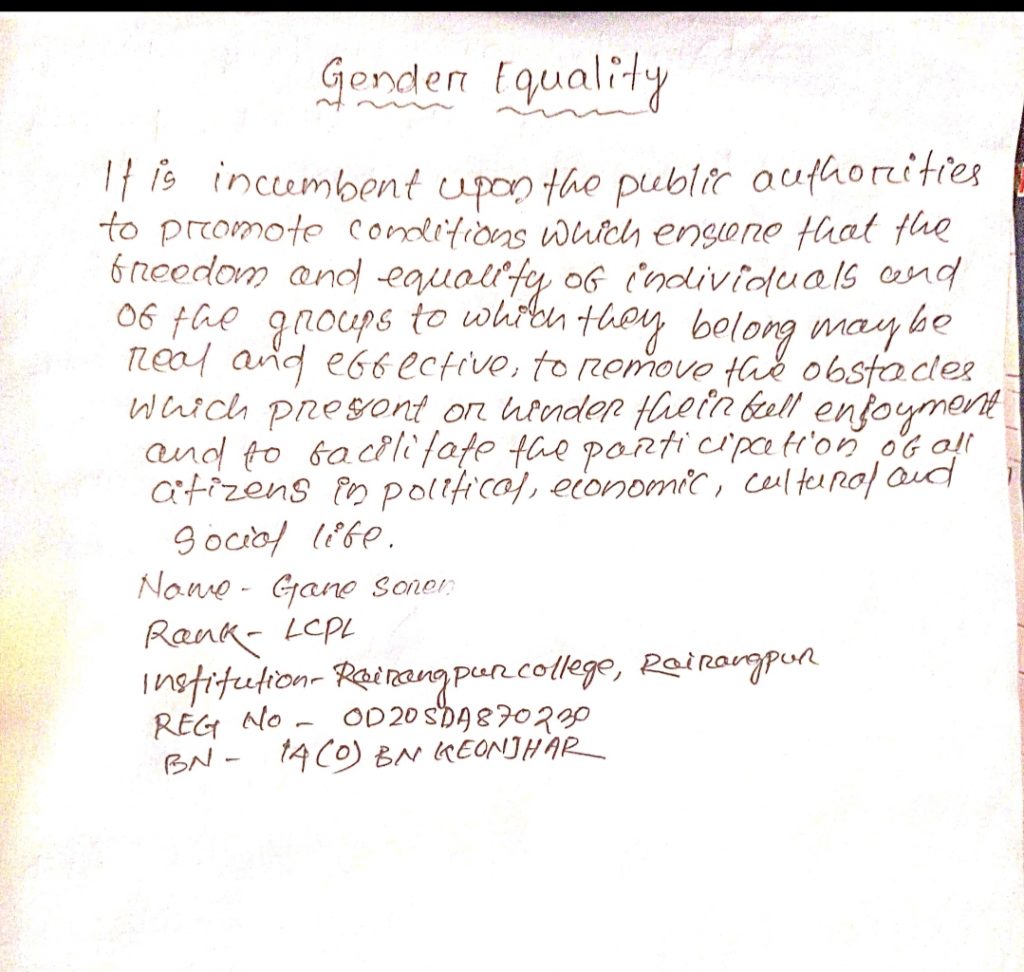 Gender Equality
It is incumbent upon the public authorities
to promote conditions which ensure that the
freedom and equality of individuals and
of the groups to which they belong may be
real and effective, to remove the obstacles
which present or hinder their full enjoyment
and to facilitate the participation of all
citizens in political, economic, cultural and
social life.
Name - Gane Soren
Rank - LCPL
Institution - Rairangpur college, Rairangpur
REG No - OD20SDA870230
BN - 14 (O) BN KEONJHAR